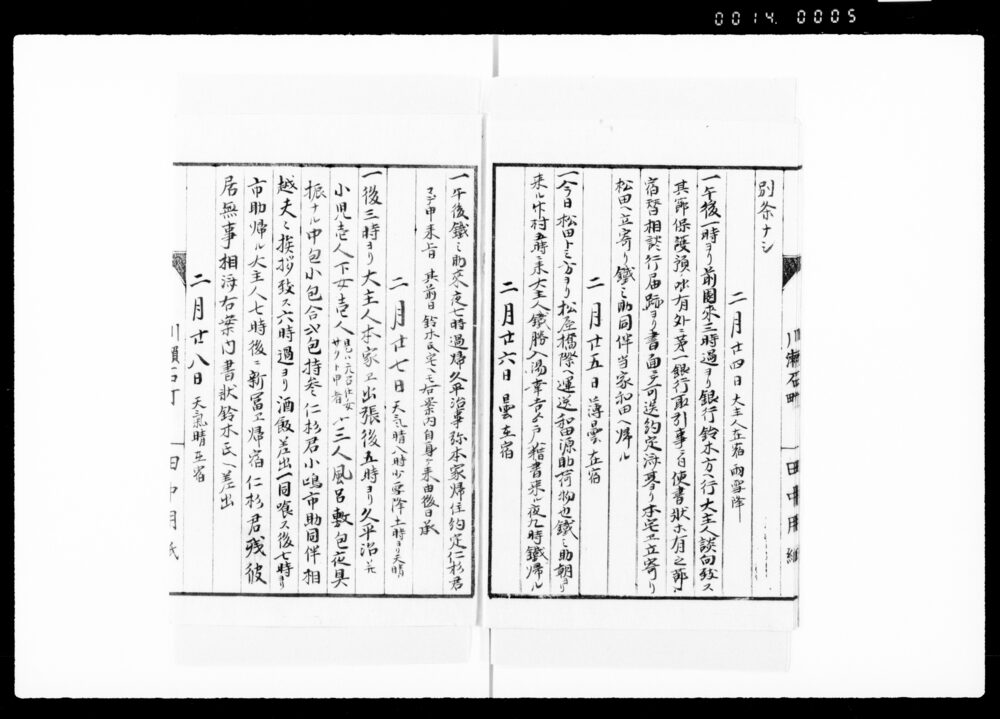 0014 0005
別条ナシ
二月廿四日 大主人在宿 雨雪降
一午後一時ヨリ前園来三時過ヨリ銀行鈴木方ヘ行大主人談向致ス
其節保護預 有外ニ第一銀行取引事ニ付使書状ホ有之節
宿替相談行届跡ヨリ書面ニテ可送約定済 ヨリ本宅ヱ立寄リ
松田ヘ立寄リ鐵之助同伴当家和田ヘ帰ル
二月廿五日 薄曇 在宿
一今日松田トミ方ヨリ松屋橋際ヘ運送和田源助荷物也鐵之助朝ヨリ
来ル 村五時ニ来大主人鐵勝入湯幸吉 戸 書来ル夜九時鐵帰ル
二月廿六日 曇 在宿
一午後鐵之助来夜七時過帰久平治事弥本家帰住約定仁杉君
マデ申来旨 其前日鈴木氏宅ヘモ右案内自身ニ来由後日承
二月廿七日 天気晴八時少雪降 土時ヨリ天晴
一後三時ヨリ大主人本家ヱ出張後五時ヨリ久平治并
小児壱人下女壱人 〆三人風呂敷包夜具
振ナル中包小包合弐包持参仁杉君小嶋市助同伴相
越夫々挨拶致ス六時過ヨリ酒飯差出一同喰ス後七時ヨリ
市助帰ル大主人七時後ニ新冨ヱ帰宿仁杉君残彼
居無事相済右案内書状鈴木氏ヘ差出
二月廿八日 天気晴在宿